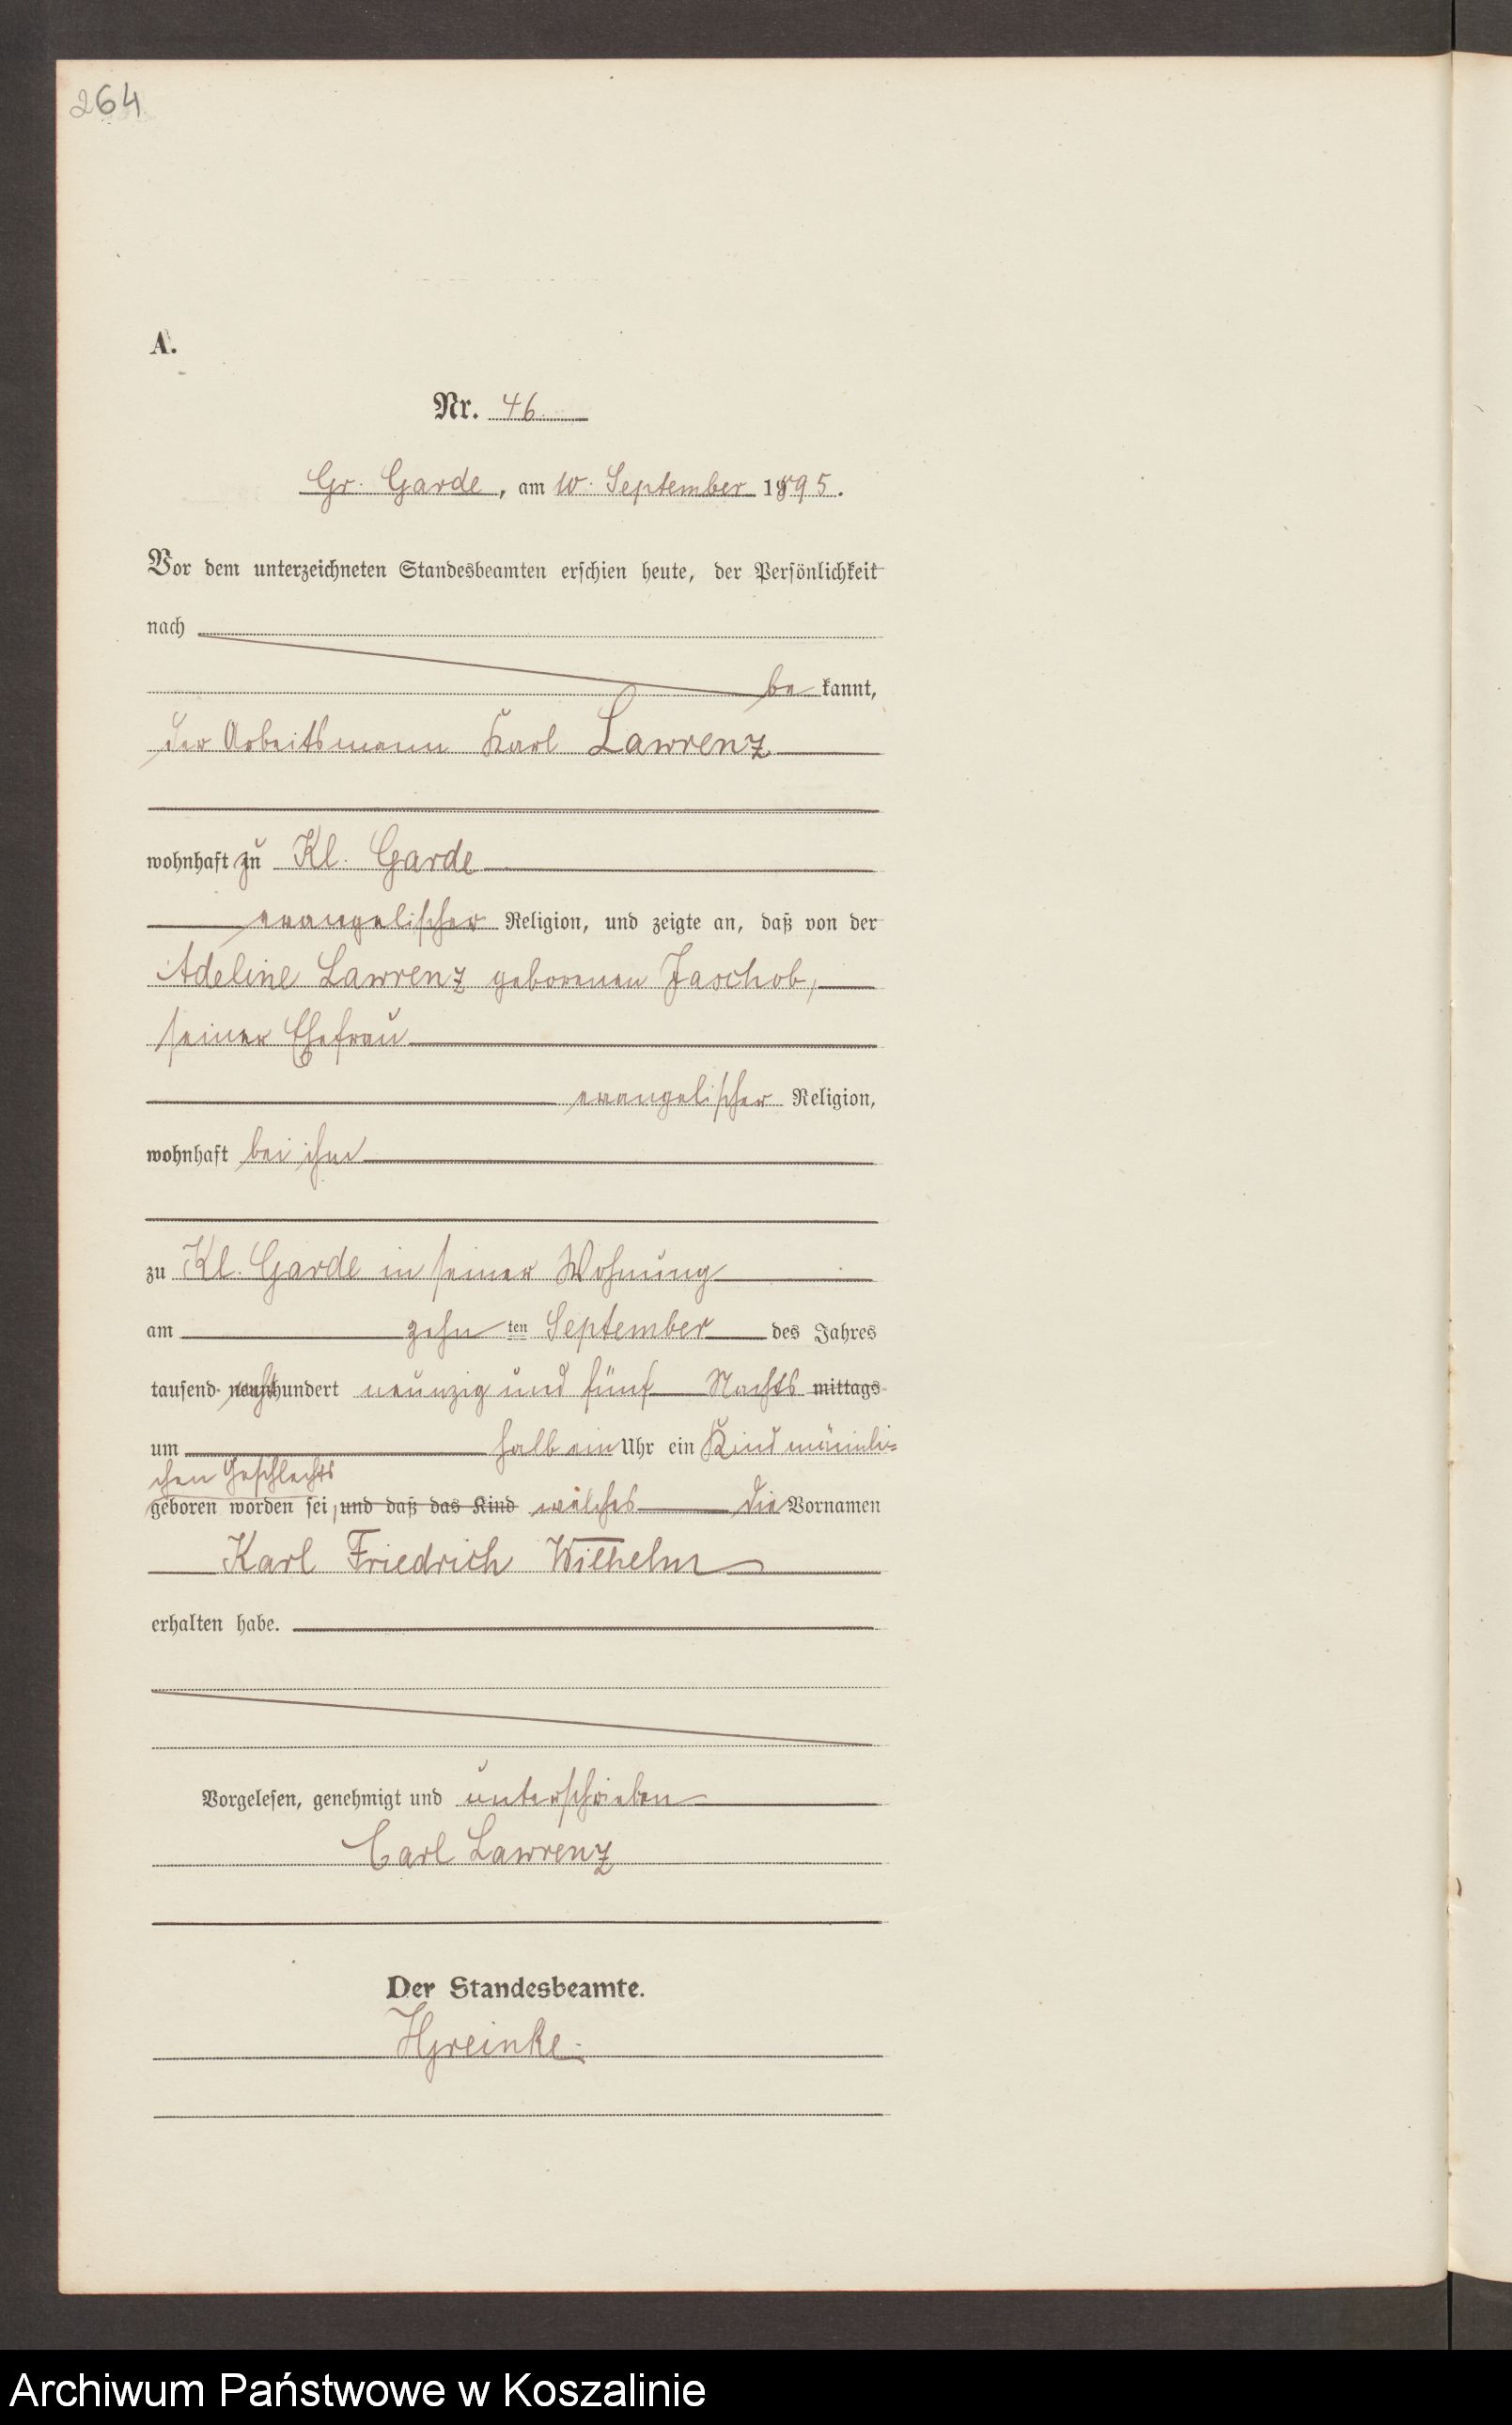 264
A.
Nr. 46.
Gr. Garde, am 10. September 1895.
Vor dem unterzeichneten Standesbeamten erschien heute, der Persönlichkeit
nach
be kannt,
der Arbeitsmann Karl Lawrenz
wohnhaft zu Kl. Garde
evangelischer Religion, und zeigte an, daß von der
Adeline Lawrenz geborenen Jaschob,
seiner Ehefrau
evangelischer Religion,
wohnhaft bei ihm
zu Kl. Garde in seiner Wohnung
am zehn ten September des Jahres
tausend achthundert neunzig und fünf Nachts mittags
um halb ein Uhr ein Kind männli=
chen Geschlechts
geboren worden sei, und daß das Kind welches die Vornamen
Karl Friedrich Wilhelm
erhalten habe.
Vorgelesen, genehmigt und unterschrieben
Carl Lawrenz
Der Standesbeamte.
Archiwum Państwowe w Koszalinie